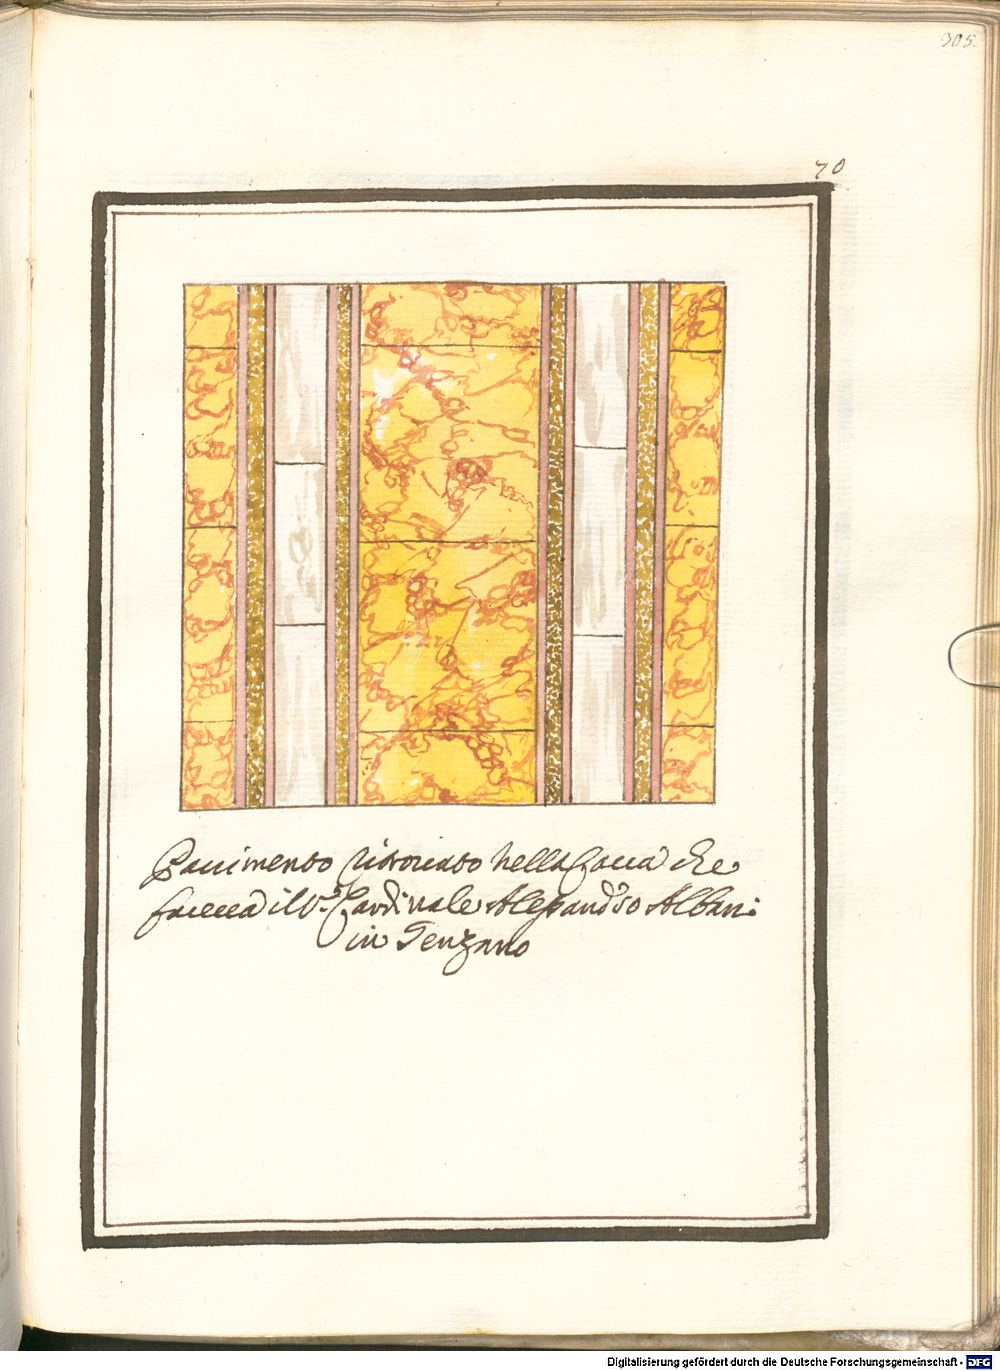 305.
70
Pauimento ritrouato nella Caua che
faceua il S.r Cardinale Alessandro Albani
in Genzano
Digitalisierung gefördert durch die Deutsche Forschungsgemeinschaft - DFG